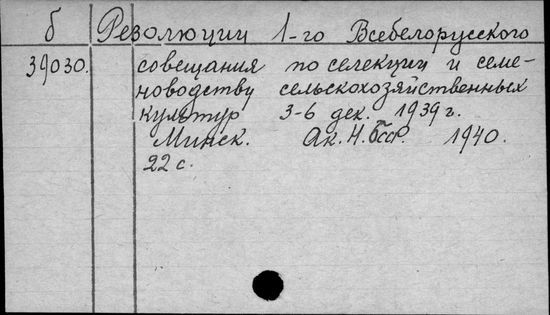 б Резолюции 1-го Всебелорусского
39030. совещания по селекции и семе-
новодству сельскохозяйственных
культур 3-6 дек. 1939 г.
Минск. Ак. Н. БССР. 1940.
22 с.